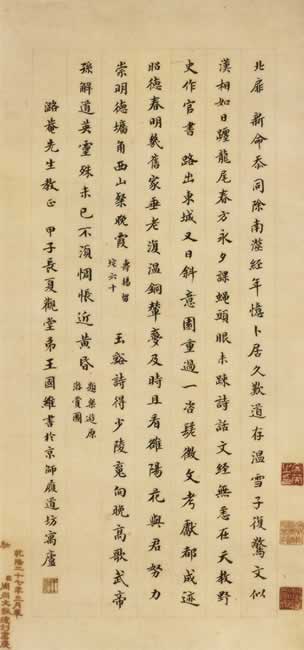 北扉新命忝同除南澨經年憶卜居久歎道存溫雪子復驚文似
漢相如日躔龍尾春方永夕課蠅頭眼未疎詩話文經無恙在天教野
史作官書 路出東城又日斜意園重過一咨嗟徵文考獻都成迹
昭德春明幾舊家垂老復溫銅輦夢及時且看雒陽花與君努力
崇明德墉角西山粲晚霞 壽楊留垞六十 玉谿詩得少陵魂向晚高歌武帝
孫解道英靈殊未已不須惆悵近黃昏 題樂遊原游賞圖
潞菴先生教正 甲子長夏觀堂弟王國維書於京師履道坊寓廬
乾隆二十七年三月